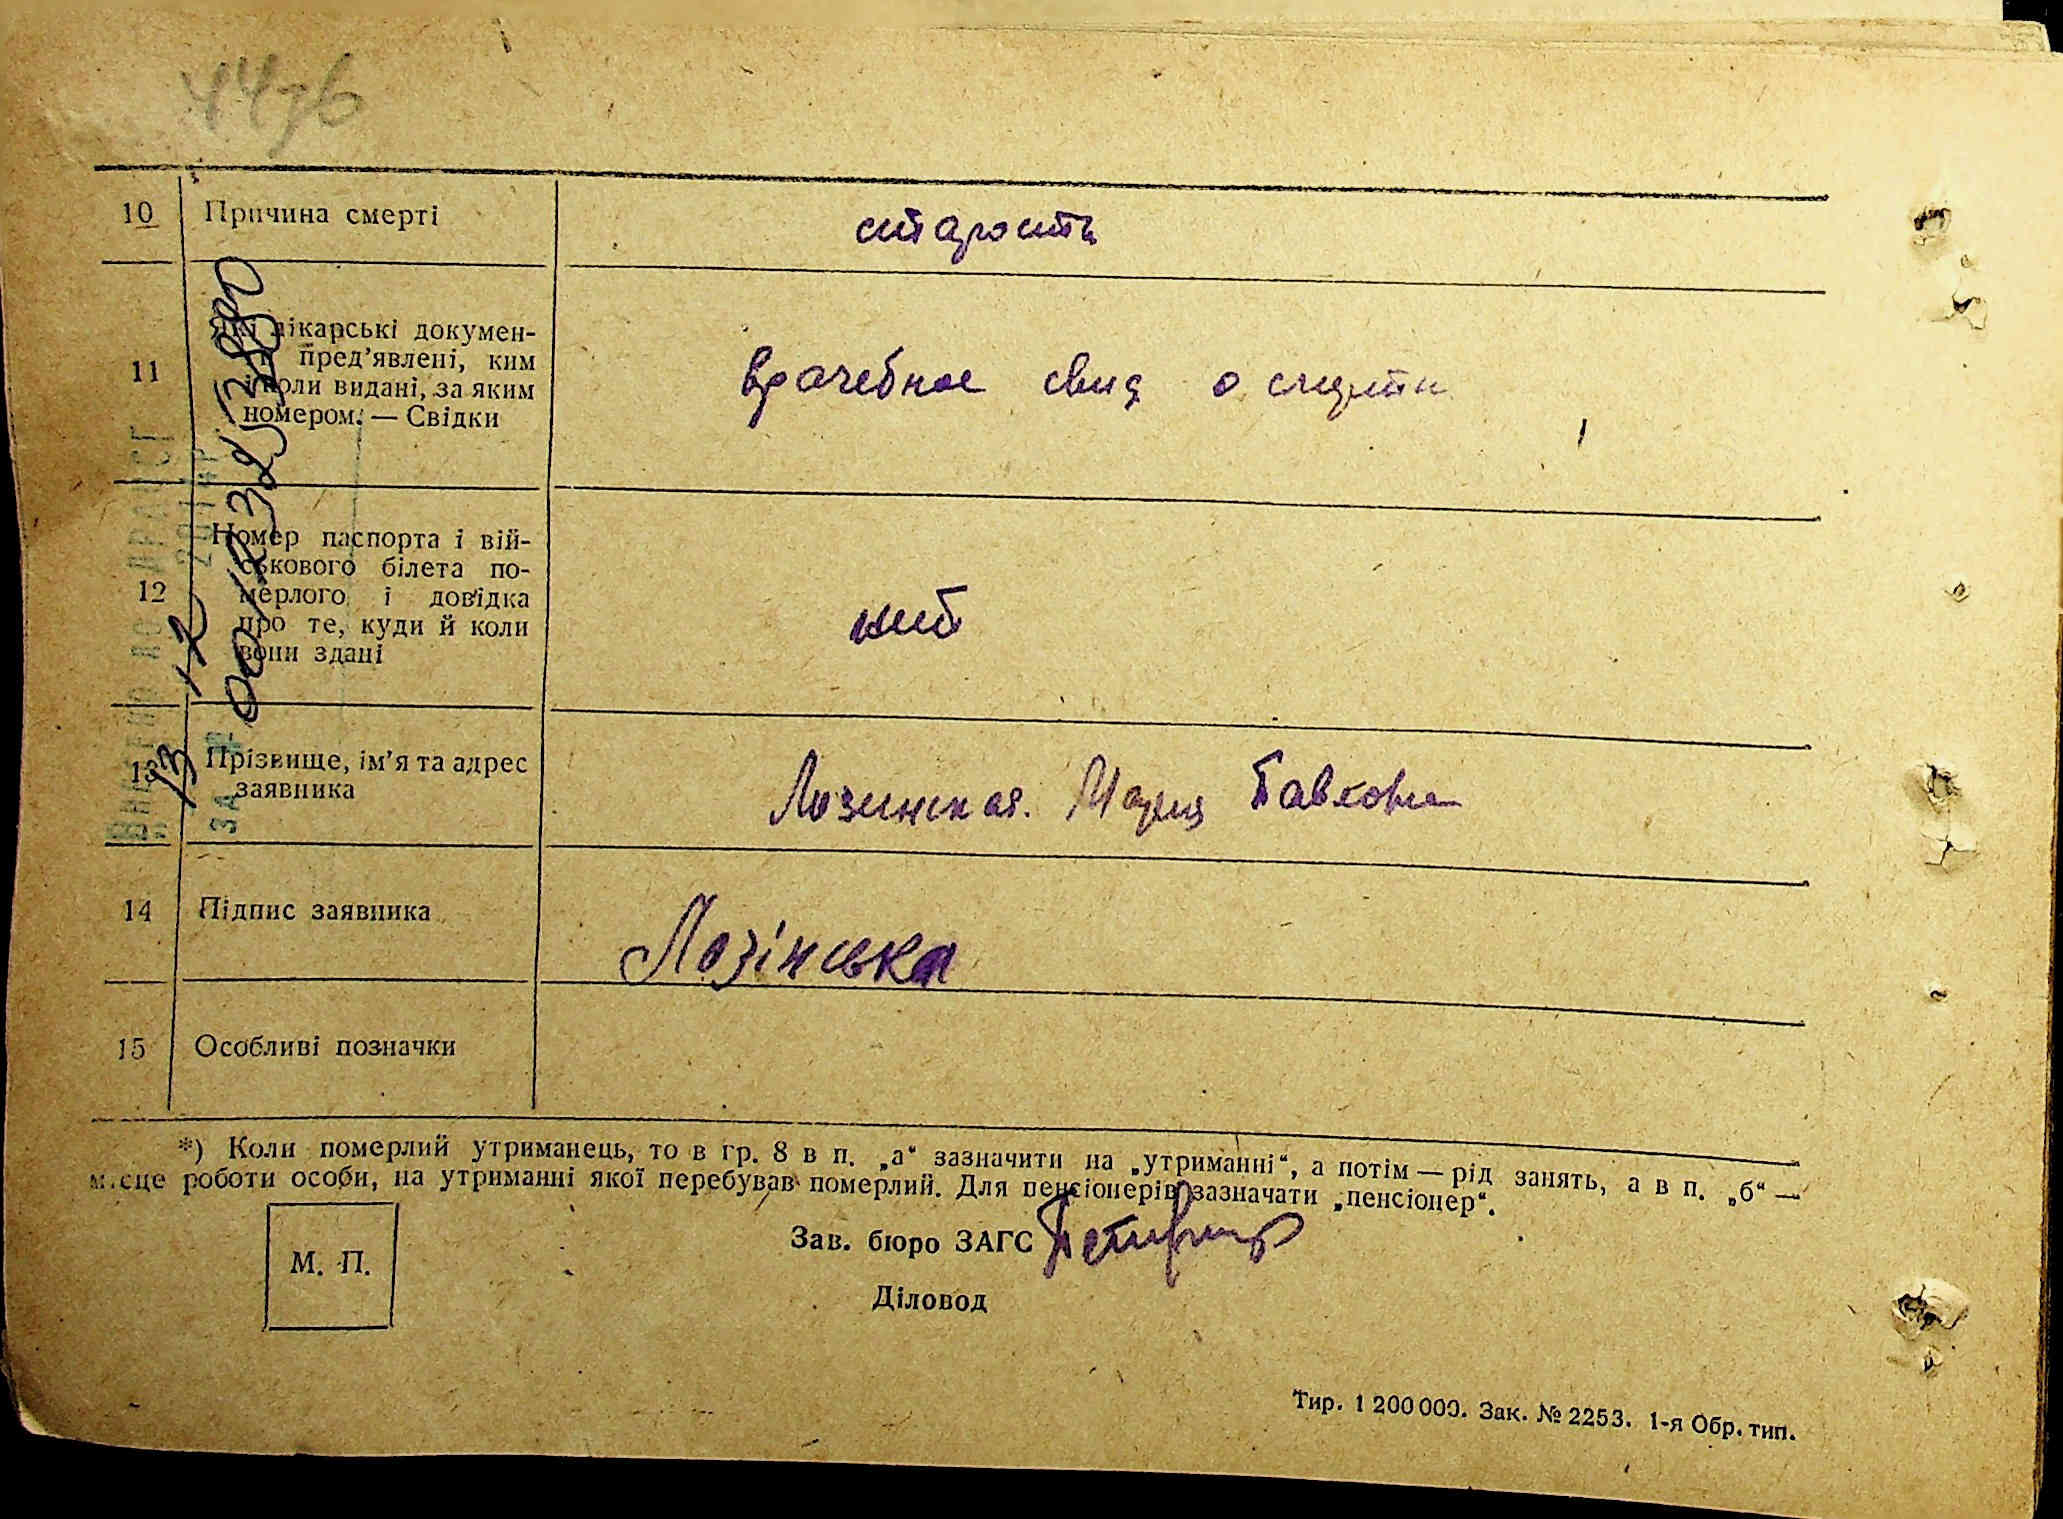 10 Причина смерті старость
11 Які лікарські докумен-
пред'явлені, ким
і коли видані, за яким
номером. — Свідки
врачебное свид о смерти
12 Номер паспорта і вій-
ськового білета по-
мерлого і довідка
про те, куди й коли
вони здані
13 Прізвище, ім'я та адрес
заявника
Лозинская. Мария Павловна
14 Підпис заявника Лозінська
15 Особливі позначки
*) Коли померлий утриманець, то в гр. 8 в п. „а“ зазначити на „утриманні“, а потім — рід занять, а в п. „б“ —
місце роботи особи, на утриманні якої перебував померлий. Для пенсіонерів зазначати „пенсіонер“.
М. П.
Зав. бюро ЗАГС
Діловод
Тир. 1 200 000. Зак. № 2253. 1-я Обр. тип.